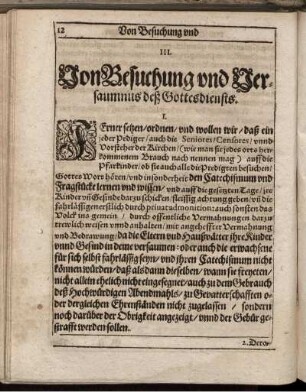 12 Von Besuchung vnd
III.
Von Besuchung vnd Ver-
saumnus deß Gottesdiensts.
I.
FErner setzen/ordnen/ vnd wollen wir/ daß ein
jeder Pediger/ auch die Seniores/Censores/ vnnd
Vorsteher der Kirchen/ (wie man sie jedes orts her-
kommenem Brauch nach nennen mag) auff die
Pfarkinder/ ob sie auch alle die Predigten besuchen/
Gottes Wort hören/ vnd in sonderheit den Catechismum vnd
Fragstücke lernen vnd wissen/ vnd auff die gesetzten Tage/ jre
Kinder vñ Gesinde darzu schicken/ fleissig achtung geben/ vñ die
fahrlässigen erstlich durch priuat admonition/ auch sonsten das
Volck ins gemein/ durch offentliche Vermahnungen darzu
trewlich weisen vnnd anhalten/ mit angeheffter Vermahnung
vnd Bedrawung/ da die Eltern vnd Haußvätter ihre Kinder
vnnd Gesind in deme versaumen: oder auch die erwachsene
für sich selbst fahrlässig seyn/ vnd ihren Catechismum nicht
können würden/ daß als dann dieselben/ wann sie freyeten/
nicht allein ehelich nicht eingesegnet/ auch zu dem Gebrauch
deß Hochwürdigen Abendmahls/ zu Gevatterschafften o-
der dergleichen Ehrnständen nicht zugelassen/ sondern
noch darüber der Obrigkeit angezeigt/ vnnd der Gebür ge-
strafft werden sollen.
2. Dero-